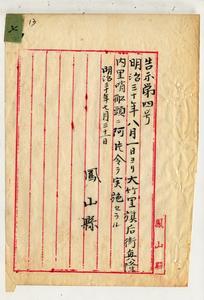 13
告示第四号
明治三十年八月一日ヨリ大竹里旗后街並鹽埕
内里哨船頭ニ阿片令ヲ実施セラル
明治三十年七月三十一日
鳳山縣
鳳山縣